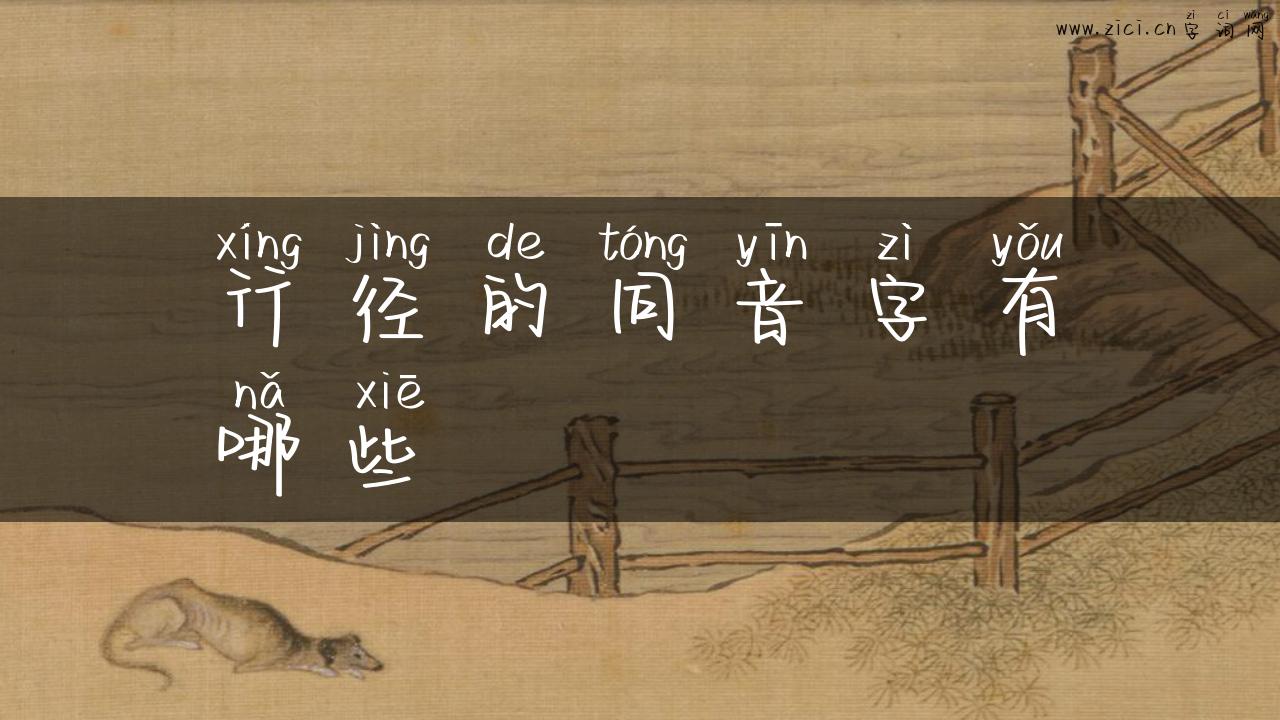 zì cí wǎng
www.zici.cn字词网
xíng jìng de tóng yīn zì yǒu
行径的同音字有
nǎ xiē
哪些